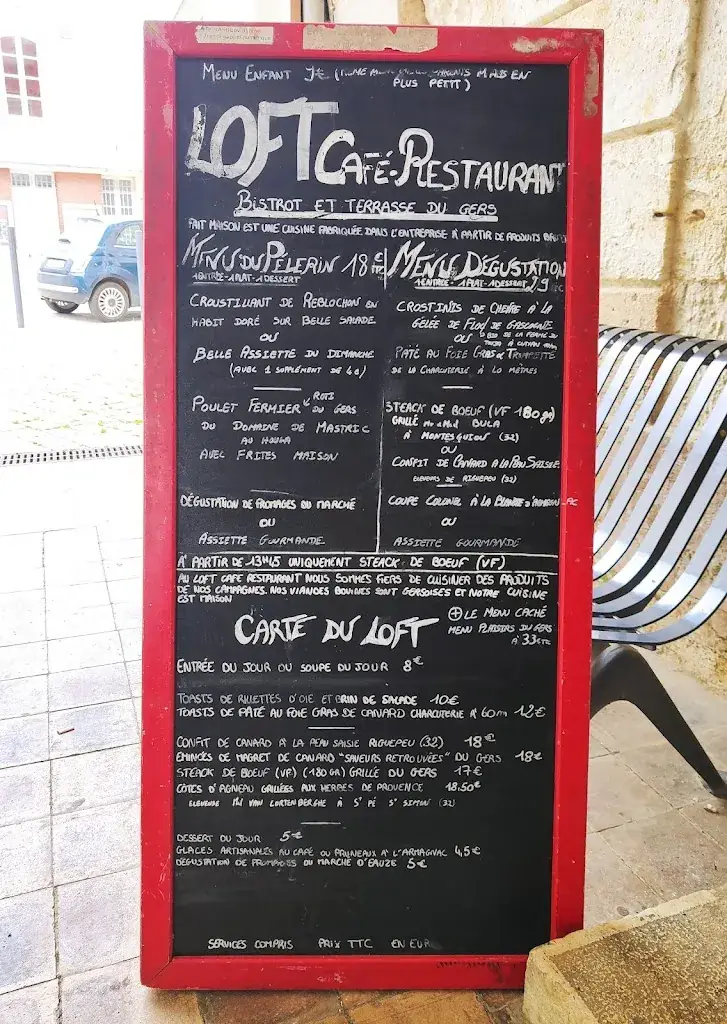 MENU ENFANT 9€ ( MAIS EN
PLUS PETIT)
LOFT CAFÉ-RESTAURANT
BISTROT ET TERRASSE DU GERS
FAIT MAISON EST UNE CUISINE FABRIQUÉE DANS L'ENTREPRISE À PARTIR DE PRODUITS
MENU DU PÈLERIN 18€
1 ENTRÉE - 1 PLAT - 1 DESSERT
CROUSTILLANT DE REBLOCHON EN
HABIT DORÉ SUR BELLE SALADE
OU
BELLE ASSIETTE DU DIMANCHE
(AVEC 1 SUPPLÉMENT DE 4€)
POULET FERMIER RÔTI
DU GERS
DU DOMAINE DE MASTRIC
AU HOUGA
AVEC FRITES MAISON
DÉGUSTATION DE FROMAGES DU MARCHÉ
OU
ASSIETTE GOURMANDE
MENU DÉGUSTATION
1 ENTRÉE - 1 PLAT - 1 DESSERT 29
CROSTINIS DE CHÈVRE À LA
GELÉE DE FLOC DE GASCOGNE
OU
PATÉ AU FOIE GRAS ET TROMPETTE
DE LA CHARCUTERIE À 60 MÈTRES
STEACK DE BOEUF (VF 180gr)
GRILLÉ BULA
À MONTESQUIOU (32)
OU
CONFIT DE CANARD A LA PEAU SAISIE
ELEVEURS DE RIGUEPEU (32)
COUPE COLONEL À LA BLANCHE D'ARMAGNAC
OU
ASSIETTE GOURMANDE
A PARTIR DE 13H45 UNIQUEMENT STEACK DE BOEUF (VF)
AU LOFT CAFE RESTAURANT NOUS SOMMES FIERS DE CUISINER DES PRODUITS
DE NOS CAMPAGNES. NOS VIANDES BOVINES SONT GERSOISES ET NOTRE CUISINE
EST MAISON
⊕ LE MENU CACHÉ
MENU PLAISIRS DU GERS
À 33€ TTC
CARTE DU LOFT
ENTRÉE DU JOUR OU SOUPE DU JOUR 8€
TOASTS DE RILLETTES D'OIE ET BRIN DE SALADE 10€
TOASTS DE PÂTÉ AU FOIE GRAS DE CANARD CHARCUTERIE À 60m 12€
CONFIT DE CANARD A LA PEAU SAISIE RIGUEPEU (32) 18€
EMINCÉS DE MAGRET DE CANARD "SAVEURS RETROUVÉES" DU GERS 18€
STEACK DE BOEUF (VF) (180 GR) GRILLÉE DU GERS 17€
CÔTES D'AGNEAU GRILLÉES AUX HERBES DE PROVENCE 18.50€
ELEVEUSE VAN LORTENBERGHE À ST PÉ ST SIMON (32)
DESSERT DU JOUR 5€
GLACES ARTISANALES AU CAFÉ OU PRUNEAUX A L'ARMAGNAC 4,5€
DÉGUSTATION DE FROMAGES DU MARCHÉ D'EAUZE 5€
SERVICES COMPRIS PRIX TTC EN EUR